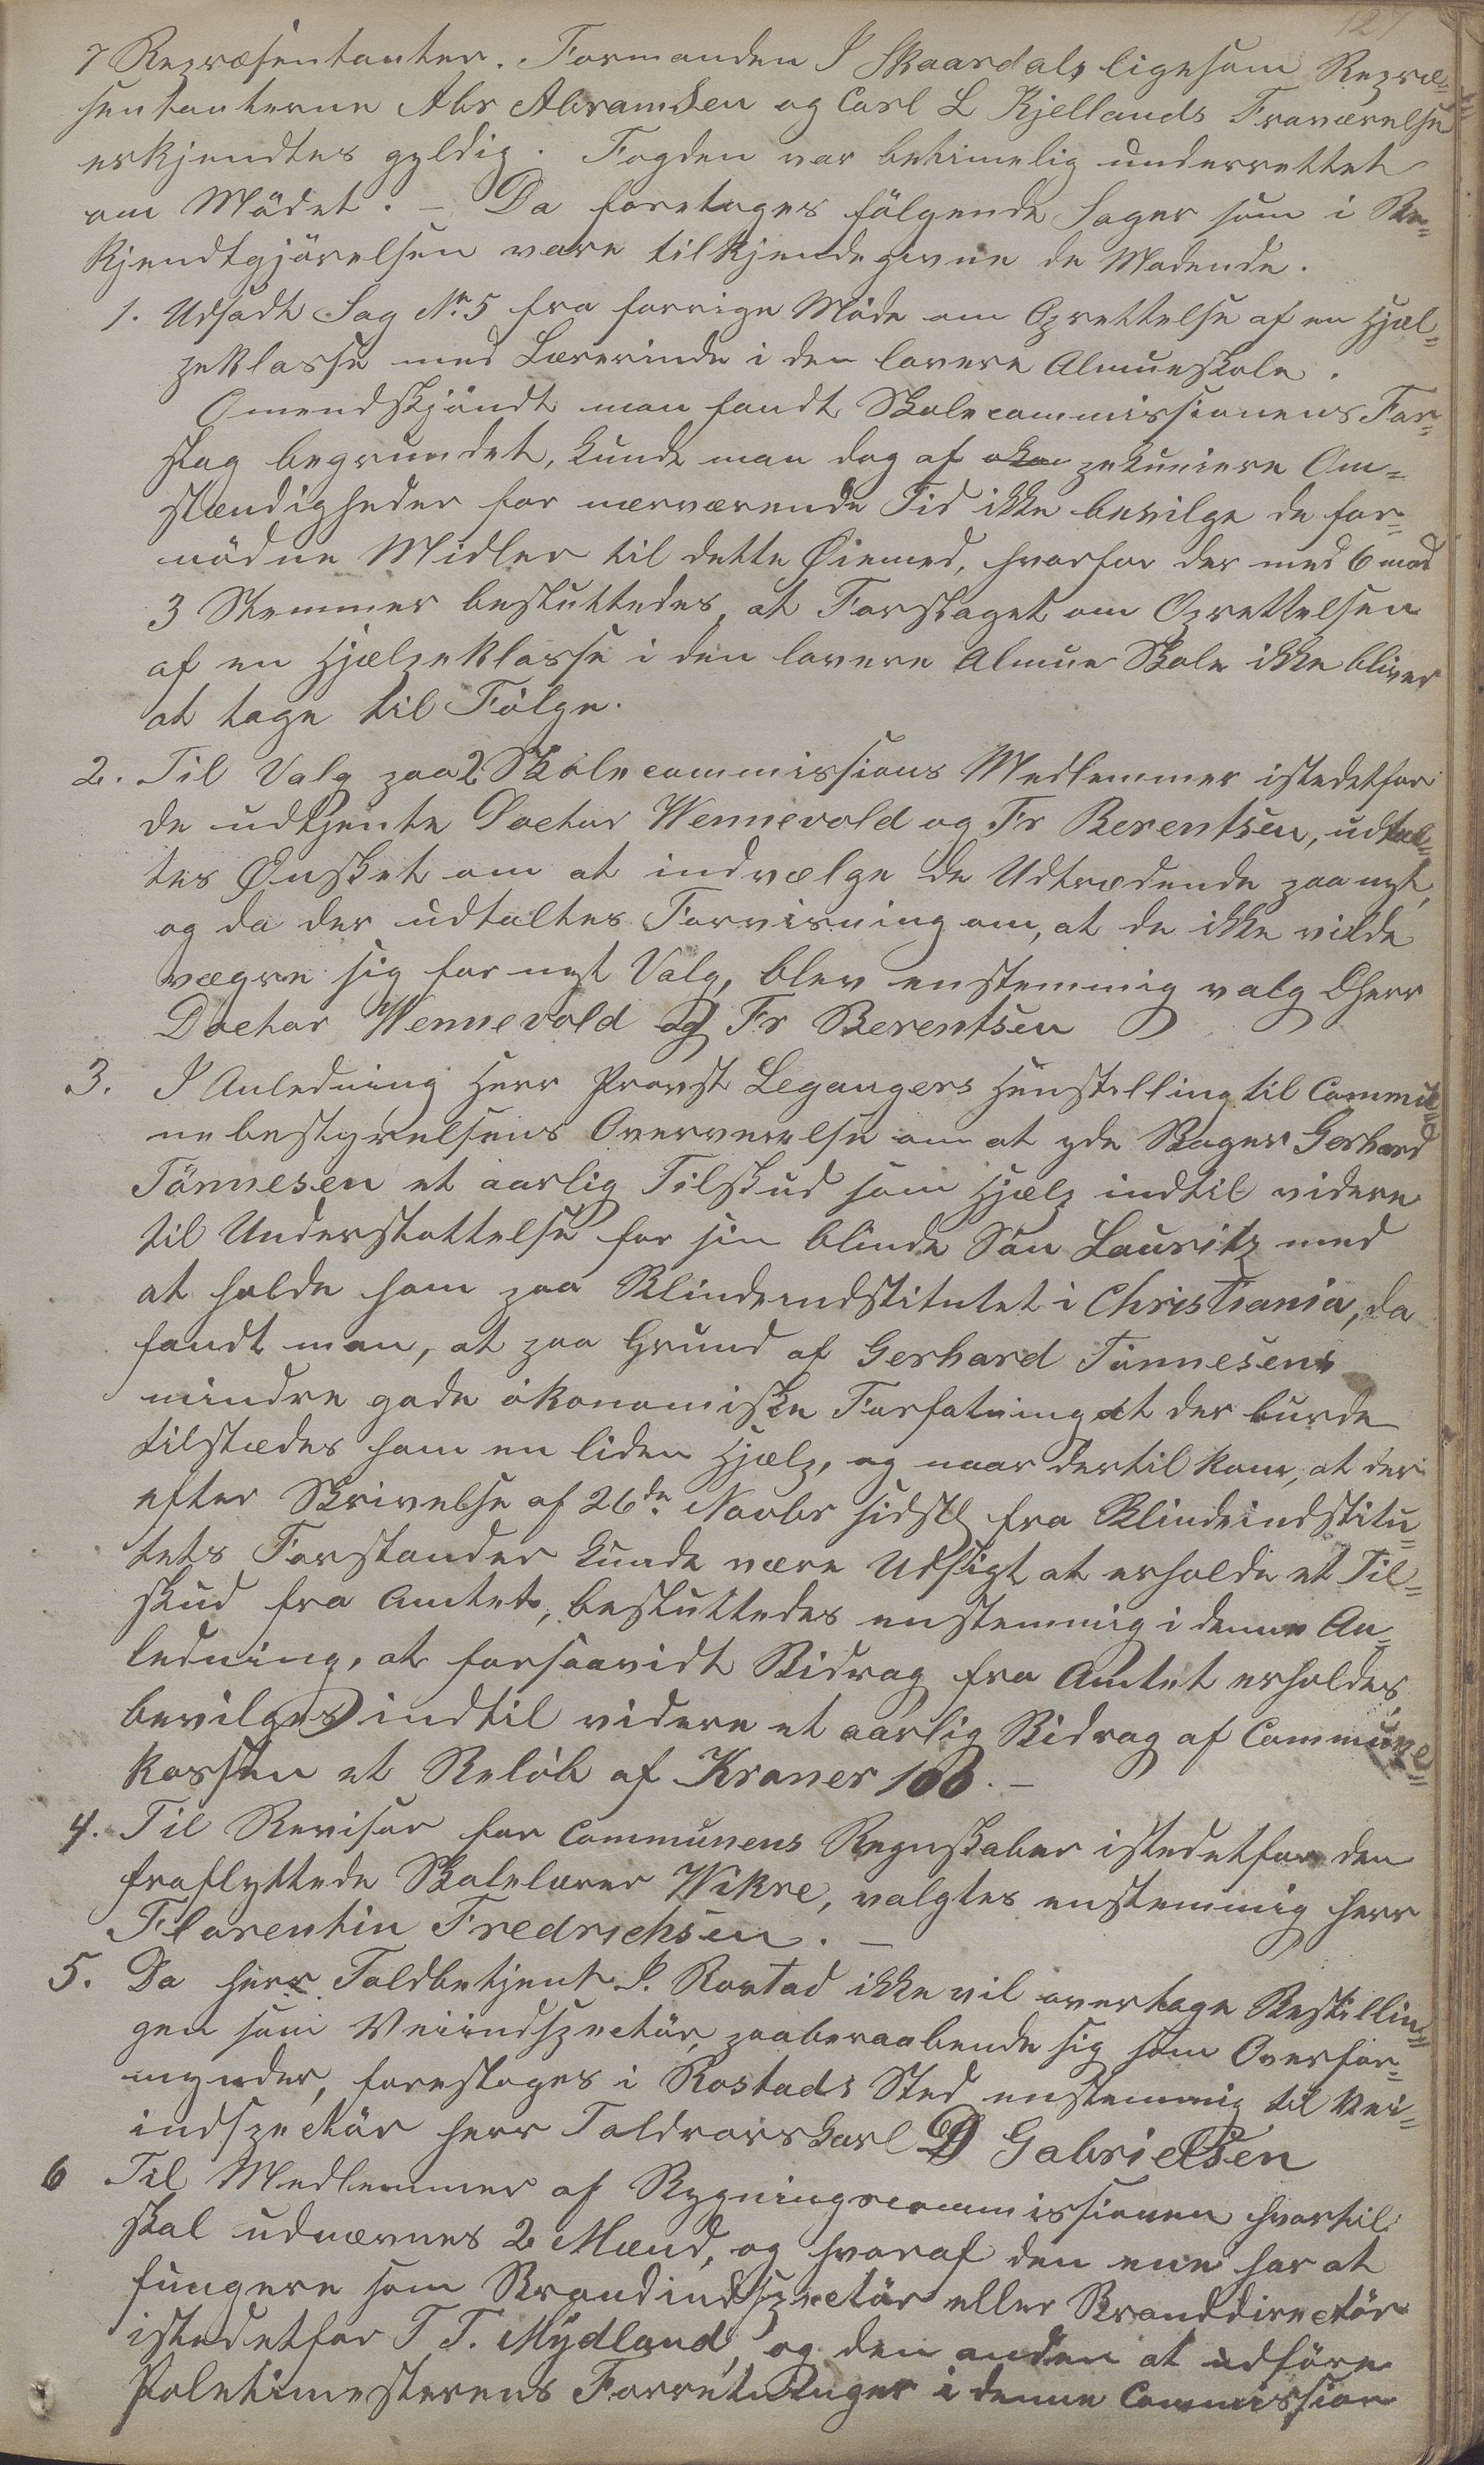 127
7 Repræsentanter. Formanden I Skaardals ligesom Repræ=
sentanterne Abr Abramsen og Carl L Kjellands Fraværelse
erkjendtes gyldig. Fogden var betimelig underrettet
om Mödet. – Da foretoges fölgende Sager som i Be=
kjendtgjörelsen vare tilkjendegivne de Mødende.
1. Udsadt Sag No 5 fra forrige Möde om Oprettelse af en Hjæl=
peklasse med Lærerinde i den lavere Almueskole.
Omendskjöndt man fandt Skolecommissionens For=
slag begrundet, kunde man dog af pekuniere Om=
stændigheder for nærværende Tid ikke bevilge de for=
nödne Midler til dette Øiemed, hvorfor der med 6 mod
3 Stemmer besluttedes, at Forslaget om Oprettelsen
af en Hjælpeklasse i den lavere Almue Skole ikke bliver
at tage til Fölge.
2. Til Valg paa 2 Skolecommissions Medlemmer istedetfor
de udtjente Doctor Wennevold og Fr Berentsen, udtal=
tes Ønsket om at indvælge de Udtrædende paa nyt,
og da der udtaltes Forvisning om, at de ikke vilde
vægre sig for nyt Valg, blev enstemmig valg DHerr
Doctor Wennevold og Fr Berentsen
3. I Anledning Herr Provst Legangers Henstilling til Commu=
nebestyrelsens Overveielse om at yde Bager Gerhard
Tönnesen et aarlig Tilskud som Hjælp indtil videre
til Understøttelse for sin blinde Sön Lauritz med
at holde ham paa Blindeindstitutet i Christiania, da
fandt man, at paa Grund af Gerhard Tönnesens
mindre gode ökonomiske Forfatning at der burde
tilstædes ham en liden Hjælp, og naar dertil kom, at der
efter Skrivelse af 26de Novbr sidstl fra Blindeindstitu=
tets Forstander kunde være Udsigt at erholde et Til=
skud fra Amtet, besluttedes enstemmig i denne An=
ledning, at forsaavidt Bidrag fra Amtet erholdes,
bevilges indtil videre et aarlig Bidrag af Commune=
kassen et Belöb af Kroner 100. –
4. Til Revisor for Communens Regnskaber istedetfor den
fraflyttede Skolelærer Wikre, valgtes enstemmig Herr
Florentin Fredrichsen. –
5. Da Herr Toldbetjent J. Rostad ikke vil overtage Bestillin=
gen som Veiindspectör, paaberaabende sig som Overfor=
mynder, foresloges i Rostads Sted enstemmig til Vei=
indspectör Herr Toldrorskarl D Gabrielsen
6 Til Medlemmer af Bygningscommissionen hvortil
skal udnævnes 2 Mænd, og hvoraf den ene har at
fungere som Brandindspectör eller Branddirectör
istedetfor T T. Mydland, og den anden at udföre
Poletimesterens Forretninger i denne Commission